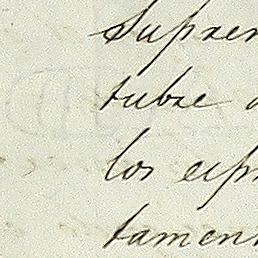 Supre
tubre
los esp
tamen